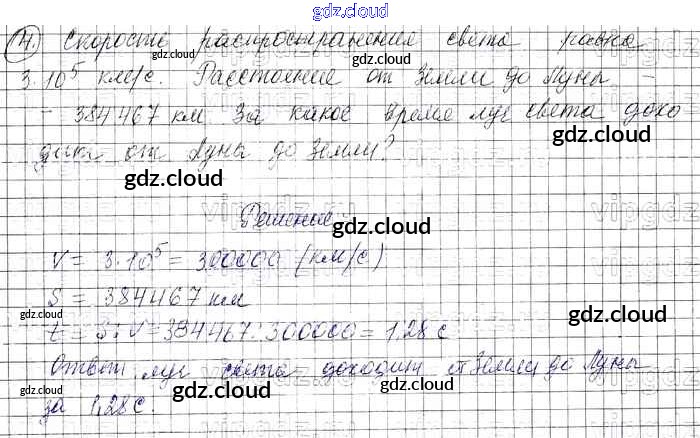 gdz.cloud
4. Скорость распространения света равна
gdz.cloud
3·10⁵ км/с. Расстояние от Земли до Луны –
– 384 467 км. За какое время луч света дохо
gdz.cloud
дит от Луны до Земли?
gdz.cloud
Решение
gdz.cloud
V = 3·10⁵ = 300000 (км/с)
gdz.cloud
S = 384467 км
gdz.cloud
t = S : V = 384467 : 300000 = 1,28 с
Ответ: луч света доходит от Земли до Луны
gdz.cloud
за 1,28 с.
gdz.cloud
gdz.cloud